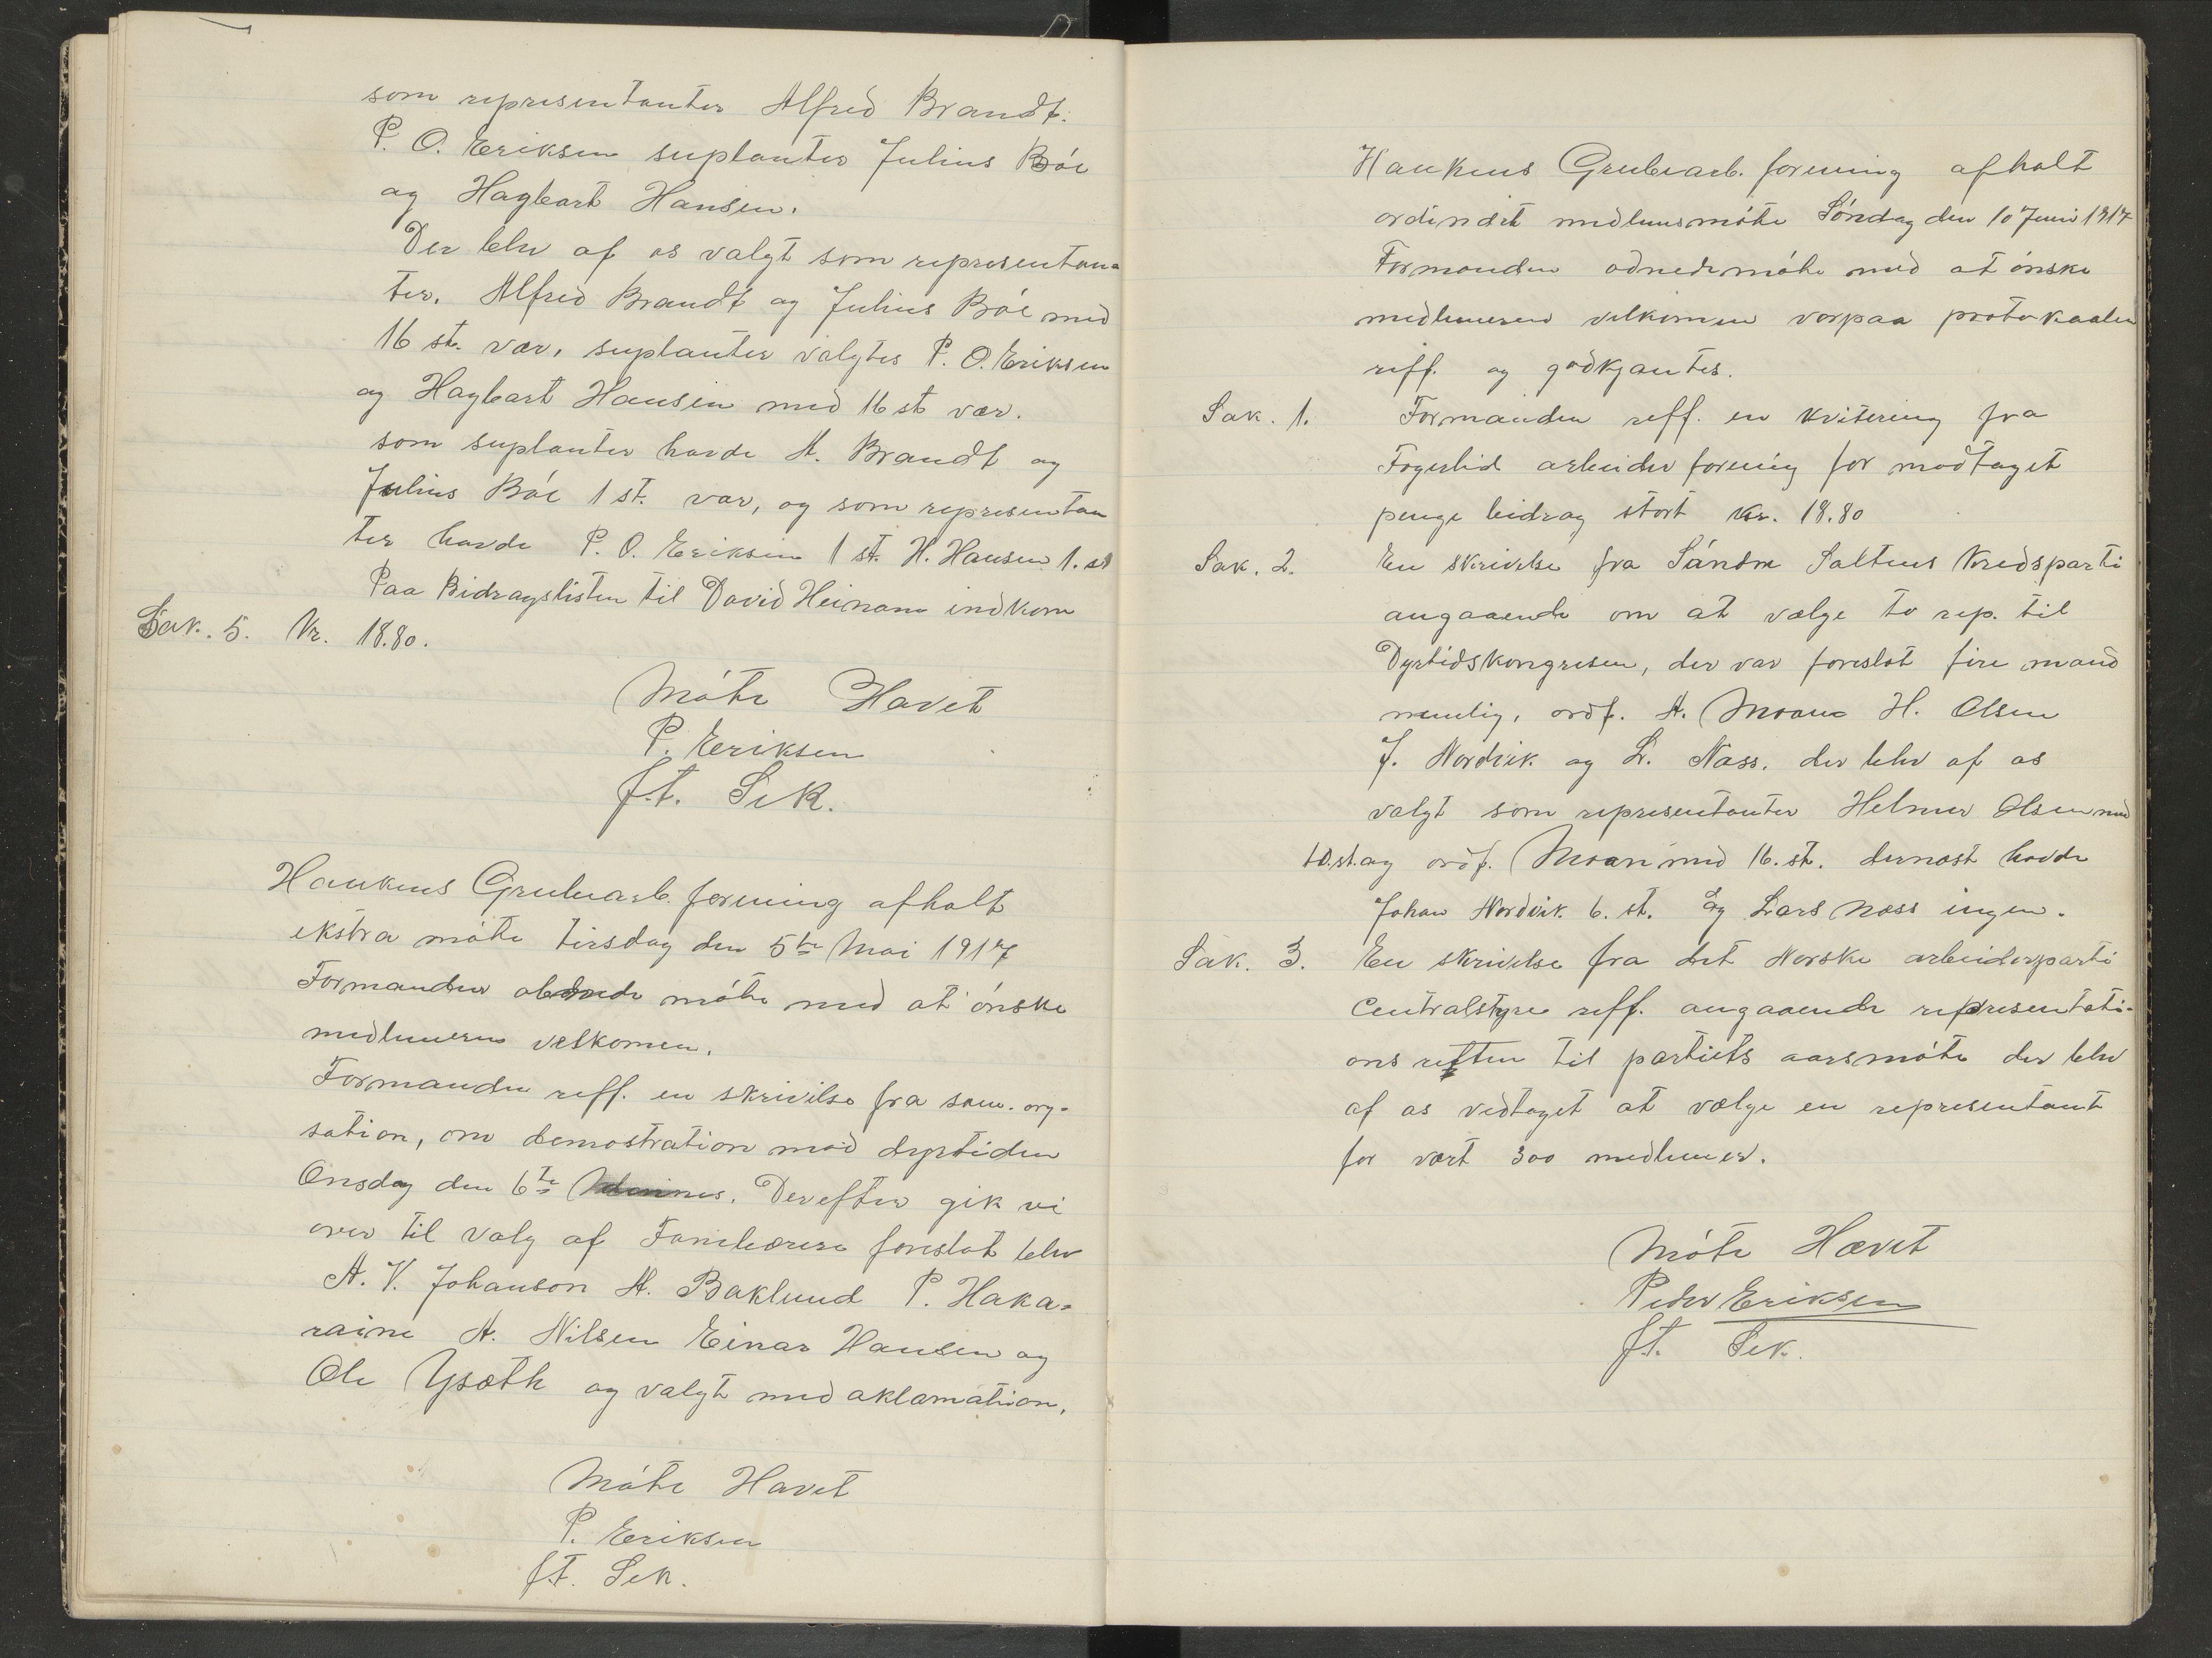 som representanter Alfred Brandt.
P. O. Eriksen suplanter Julius Bóe
og Hagbart Hansen.
Der blev af os valgt som representan=
ter. Alfred Brandt og Julius Bóe med
16 st. vær, suplanter valgtes P. O. Eriksen
og Hagbart Hansen med 16 st vær.
som suplanter havde A. Brandt og
Julius Bóe 1 st. vær, og som representan
ter havde P. O. Eriksen 1 st. H. Hansen 1. st
Paa Bidragslisten til David Heinam indkom
Sak. 5. Kr. 18.80.
Móte Hævet
P. Eriksen
f.t. Sek.
Haukens Grubearb. forening afholt
ekstra móte tirsdag den 5te Mai 1917
Formanden móte med at ónske
medlemerne velkomen.
Formanden reff. en skrivelse fra sam. org-
sation, om demostration mod dyrtiden
Onsdag den 6te Derefter gik vi
over til valg af Fanebærere foreslat blev
A. V. Johanson A. Baklund P. Haka-
raine A. Nilsen Einar Hansen og
Ole Ysæth og valgt med aklamation.
Móte Hævet
P. Eriksen
f.t. Sek.
Haukens Grubearb. forening afholt
ordinært medlemsmóte Sóndag den 10 Juni 1917
Formanden odnede móte med at ónske
medlemerne velkomen vorpaa protokaalen
reff. og godkjantes.
Sak. 1. Formanden reff. en kvitering fra
Fagerlid arbeider forening for modtaget
penge bidrag stort kr. 18.80
Sak. 2. En skrivelse fra Sándre Saltens Kredsparti
angaaende om at vælge to rep. til
Dyrtidskongresen, der var foreslat fire mand
nemlig, ordf. A. Moan H. Olsen
J. Nordvik og L. Næss. der blev af os
valgt som representanter Helmer Olsen med
10. st. og ordf. Moan med 16. st. dernæst havde
Johan Nordvik 6. st. og Lars Næss ingen.
Sak. 3. En skrivelse fra det Norske arbeiderparti
Centralstyre reff. angaaende representati-
ons retten til partiets aarsmóte der blev
af os vedtaget at vælge en representant
for vært 300 medlemer.
Móte Hævet
Peder Eriksen
f.t. Sek.